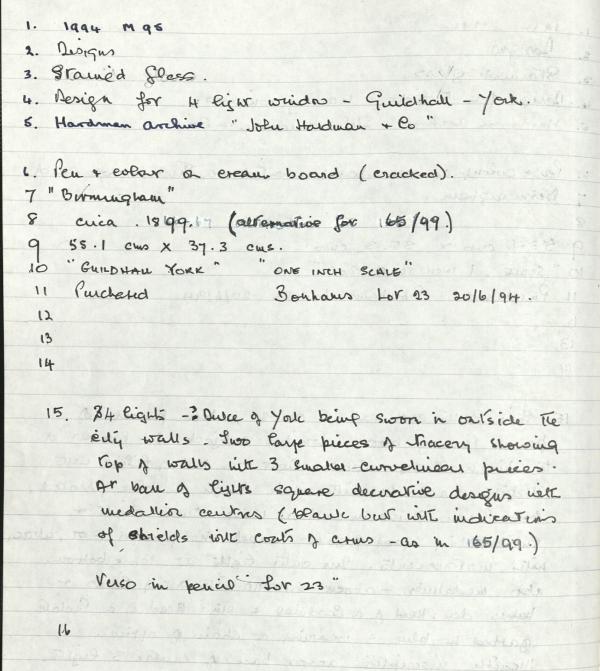 1. 1994 M 95
2. Designs
3. Stained Glass.
4. Design for 4 light window - Guildhall - York.
5. Hardman archive "John Hardman & Co"
6. Pen & colour on cream board (cracked).
7 "Birmingham"
8 circa . 1899. (alternative for 165/99.)
9 55.1 cms x 37.3 cms.
10 "GUILDHALL YORK" "ONE INCH SCALE"
11 Purchased Bonhams Lot 23 20/6/94.
12
13
14
15. 4 lights - ? Duke of York being sworn in outside the
city walls. Two large pieces of tracery showing
top of walls with 3 smaller curvelinear pieces.
At base of lights square decorative designs with
medallion centres (blank but with indications
of shields with coats of arms - as in 165/99.)
Verso in pencil "Lot 23"
16